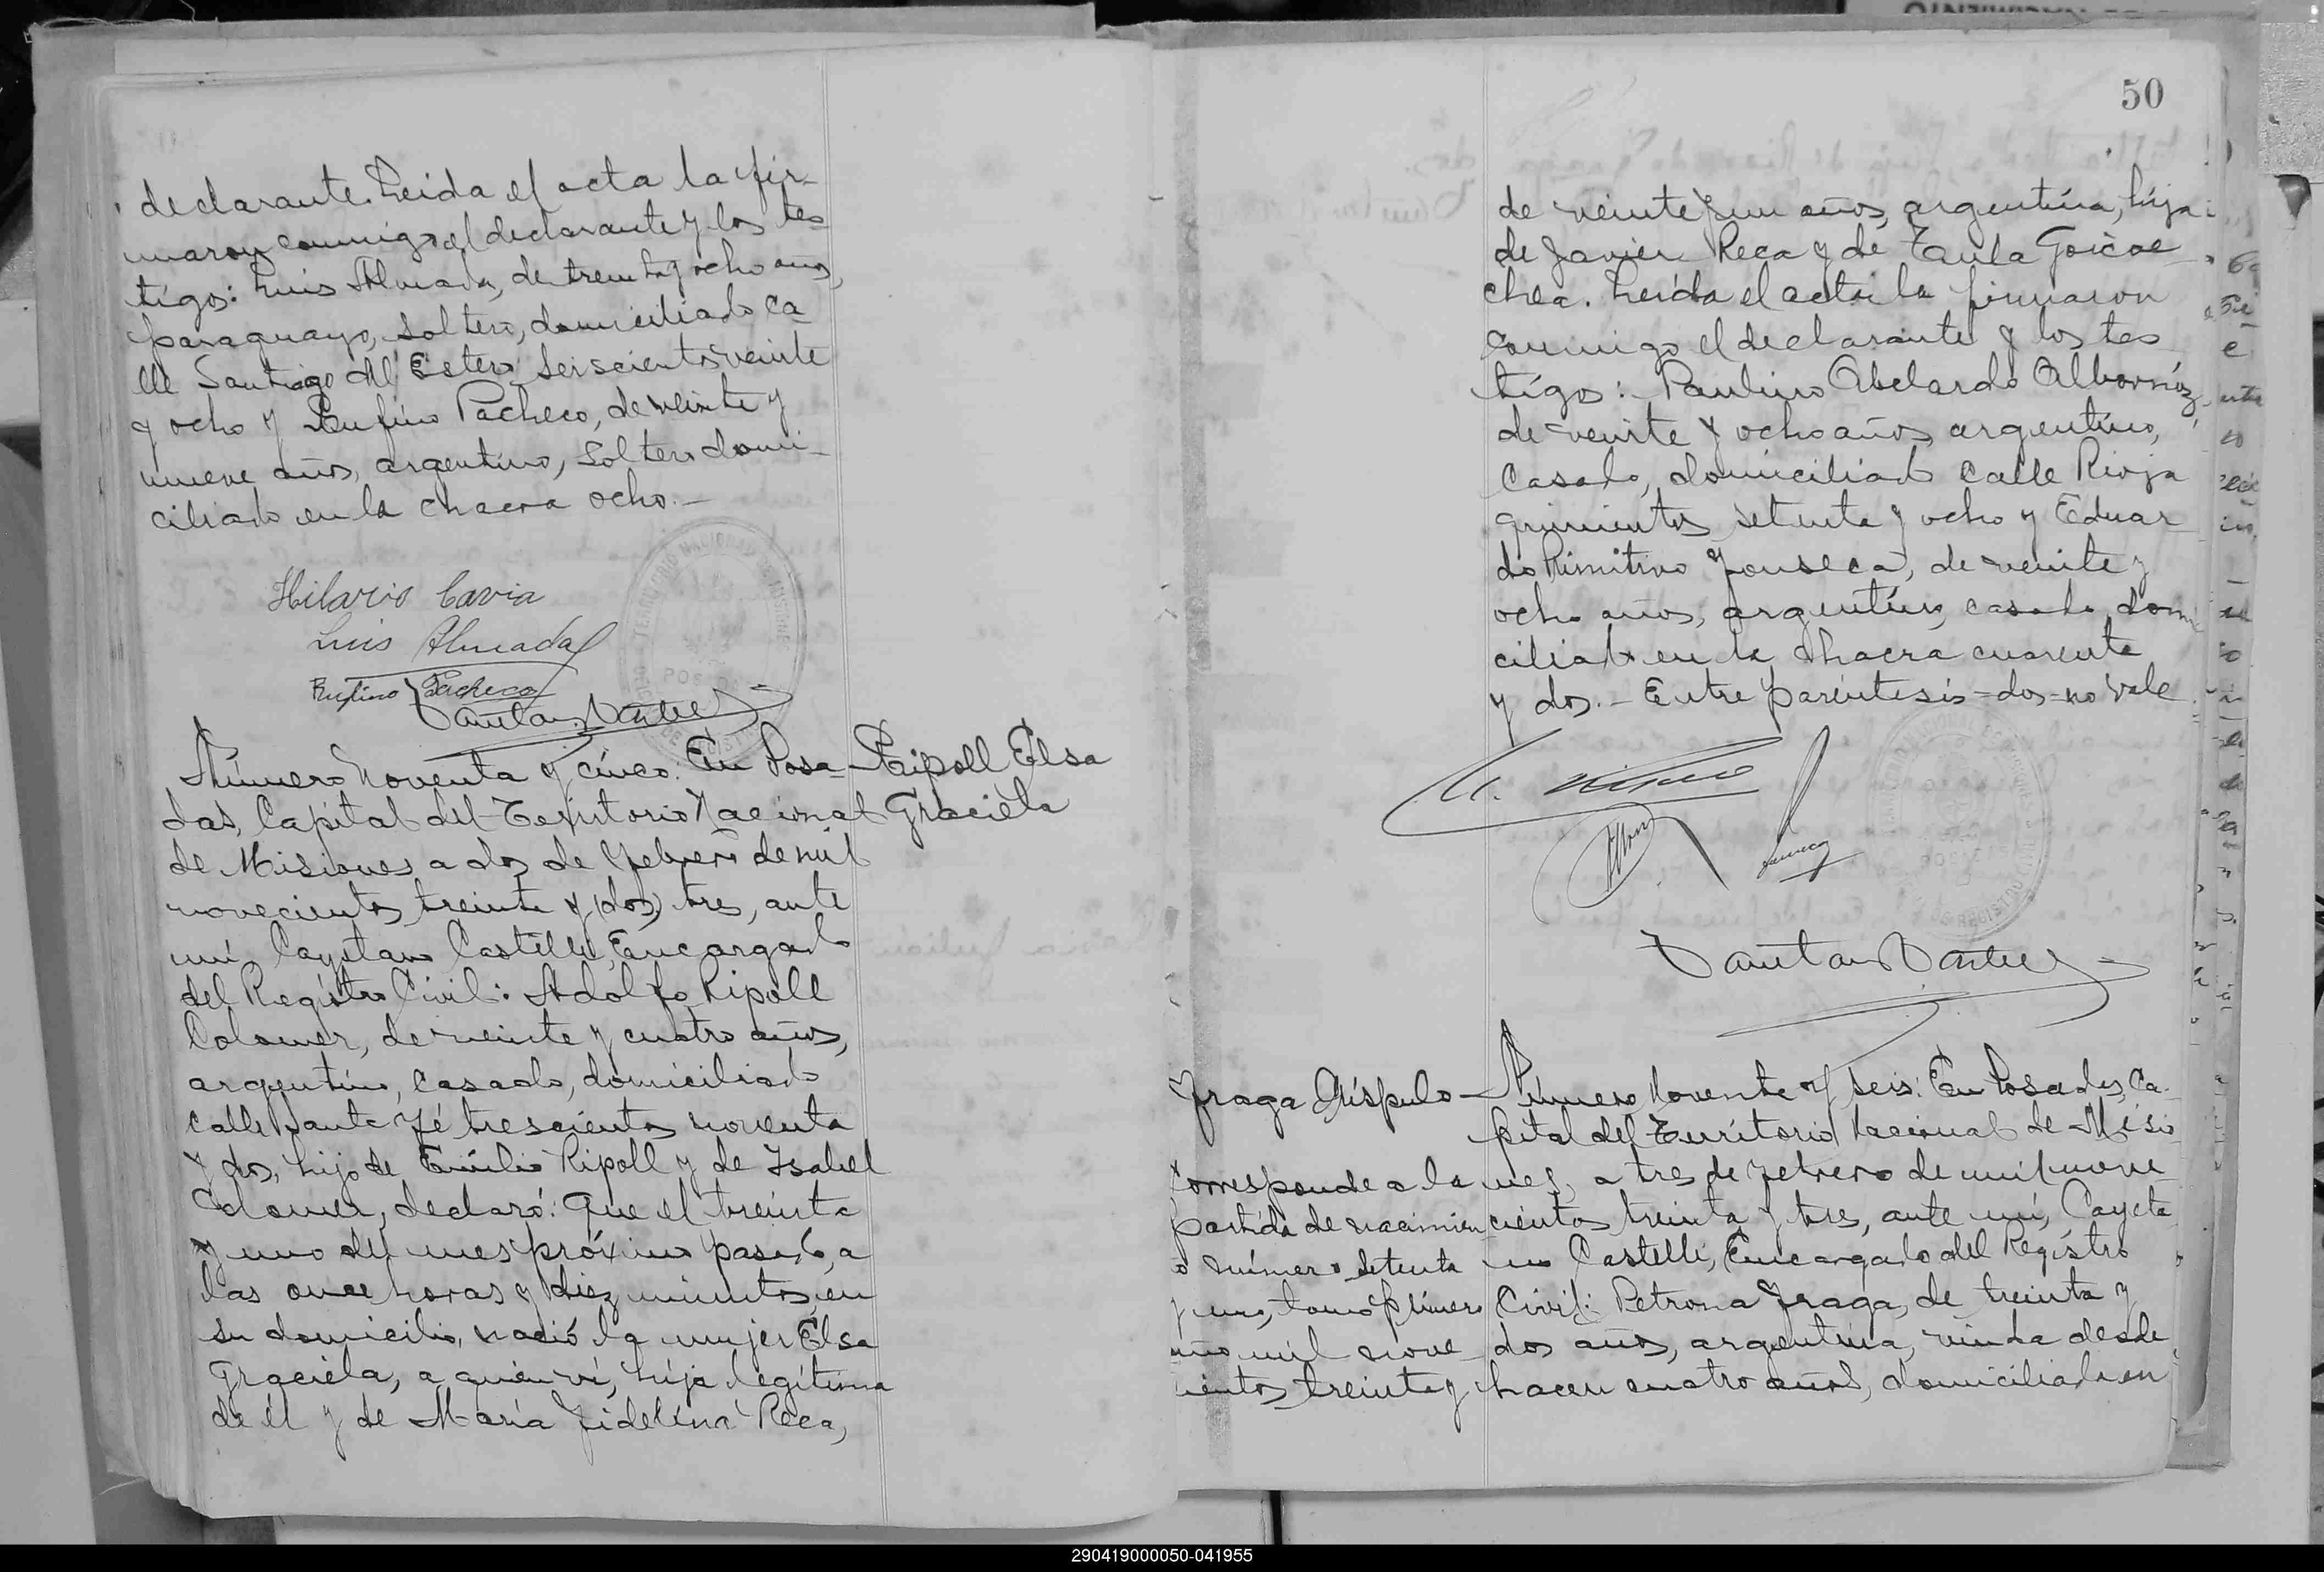 declarante. Leida el acta la fir-
maron conmigo el declarante y los tes
tigos: Luis Almada, de treinta y ocho años,
paraguayo, soltero, domiciliado ca
lle Santiago del Estero seiscientos veinte
y ocho y Rufino Pacheco, de veinte y
nueve años, argentino, soltero domi-
ciliado en la chacra ocho.-
Hilario Cavia
Luis Almada
Rufino Pacheco
Número Noventa y cinco. En Posa-
das, Capital del Territorio Nacional
de Misiones, a dos de Febrero de mil
novecientos treinta y (dos) tres, ante
mí, Cayetano Castelli, Encargado
del Registro Civil: Adolfo Ripoll
Colomer, de veinte y cuatro años,
argentino, casado, domiciliado
calle Santa Fé trescientos noventa
y dos, hijo de Emilio Ripoll y de Isabel
Colomer, declaró: Que el treinta
y uno del mes próximo pasado, a
las once horas y diez minutos, en
su domicilio, nació la mujer Elsa
Graciela, a quien ví, hija legítima
de él y de María Fidelina Reca,
Ripoll Elsa
Graciela
50
de veinte y un años, argentina, hija
de Javier Reca y de Paula Goicoe
chea. Leída el acta la firmaron
conmigo el declarante y los tes
tigos: Paulino Abelardo Albornóz,
de veinte y ocho años, argentino,
casado, domiciliado calle Rioja
quinientos setenta y ocho y Eduar
do Primitivo Fonseca, de veinte y
ocho años, argentino, casado, domi
ciliado en la chacra cuarenta
y dos.- Entre paréntesis=dos=no vale
Fraga Críspulo
Corresponde a la
partida de nacimien
o número setenta
y uno, tomo primero
año mil nove
cientos treinta y
Número Noventa y seis: En Posadas, Ca-
pital del Territorio Nacional de Misio
nes, a tres de Febrero de mil nove
cientos treinta y tres, ante mí, Cayeta
no Castelli, Encargado del Registro
Civil: Petrona Fraga, de treinta y
dos años, argentina, viuda desde
hacen cuatro años, domiciliada en
290419000050-041955